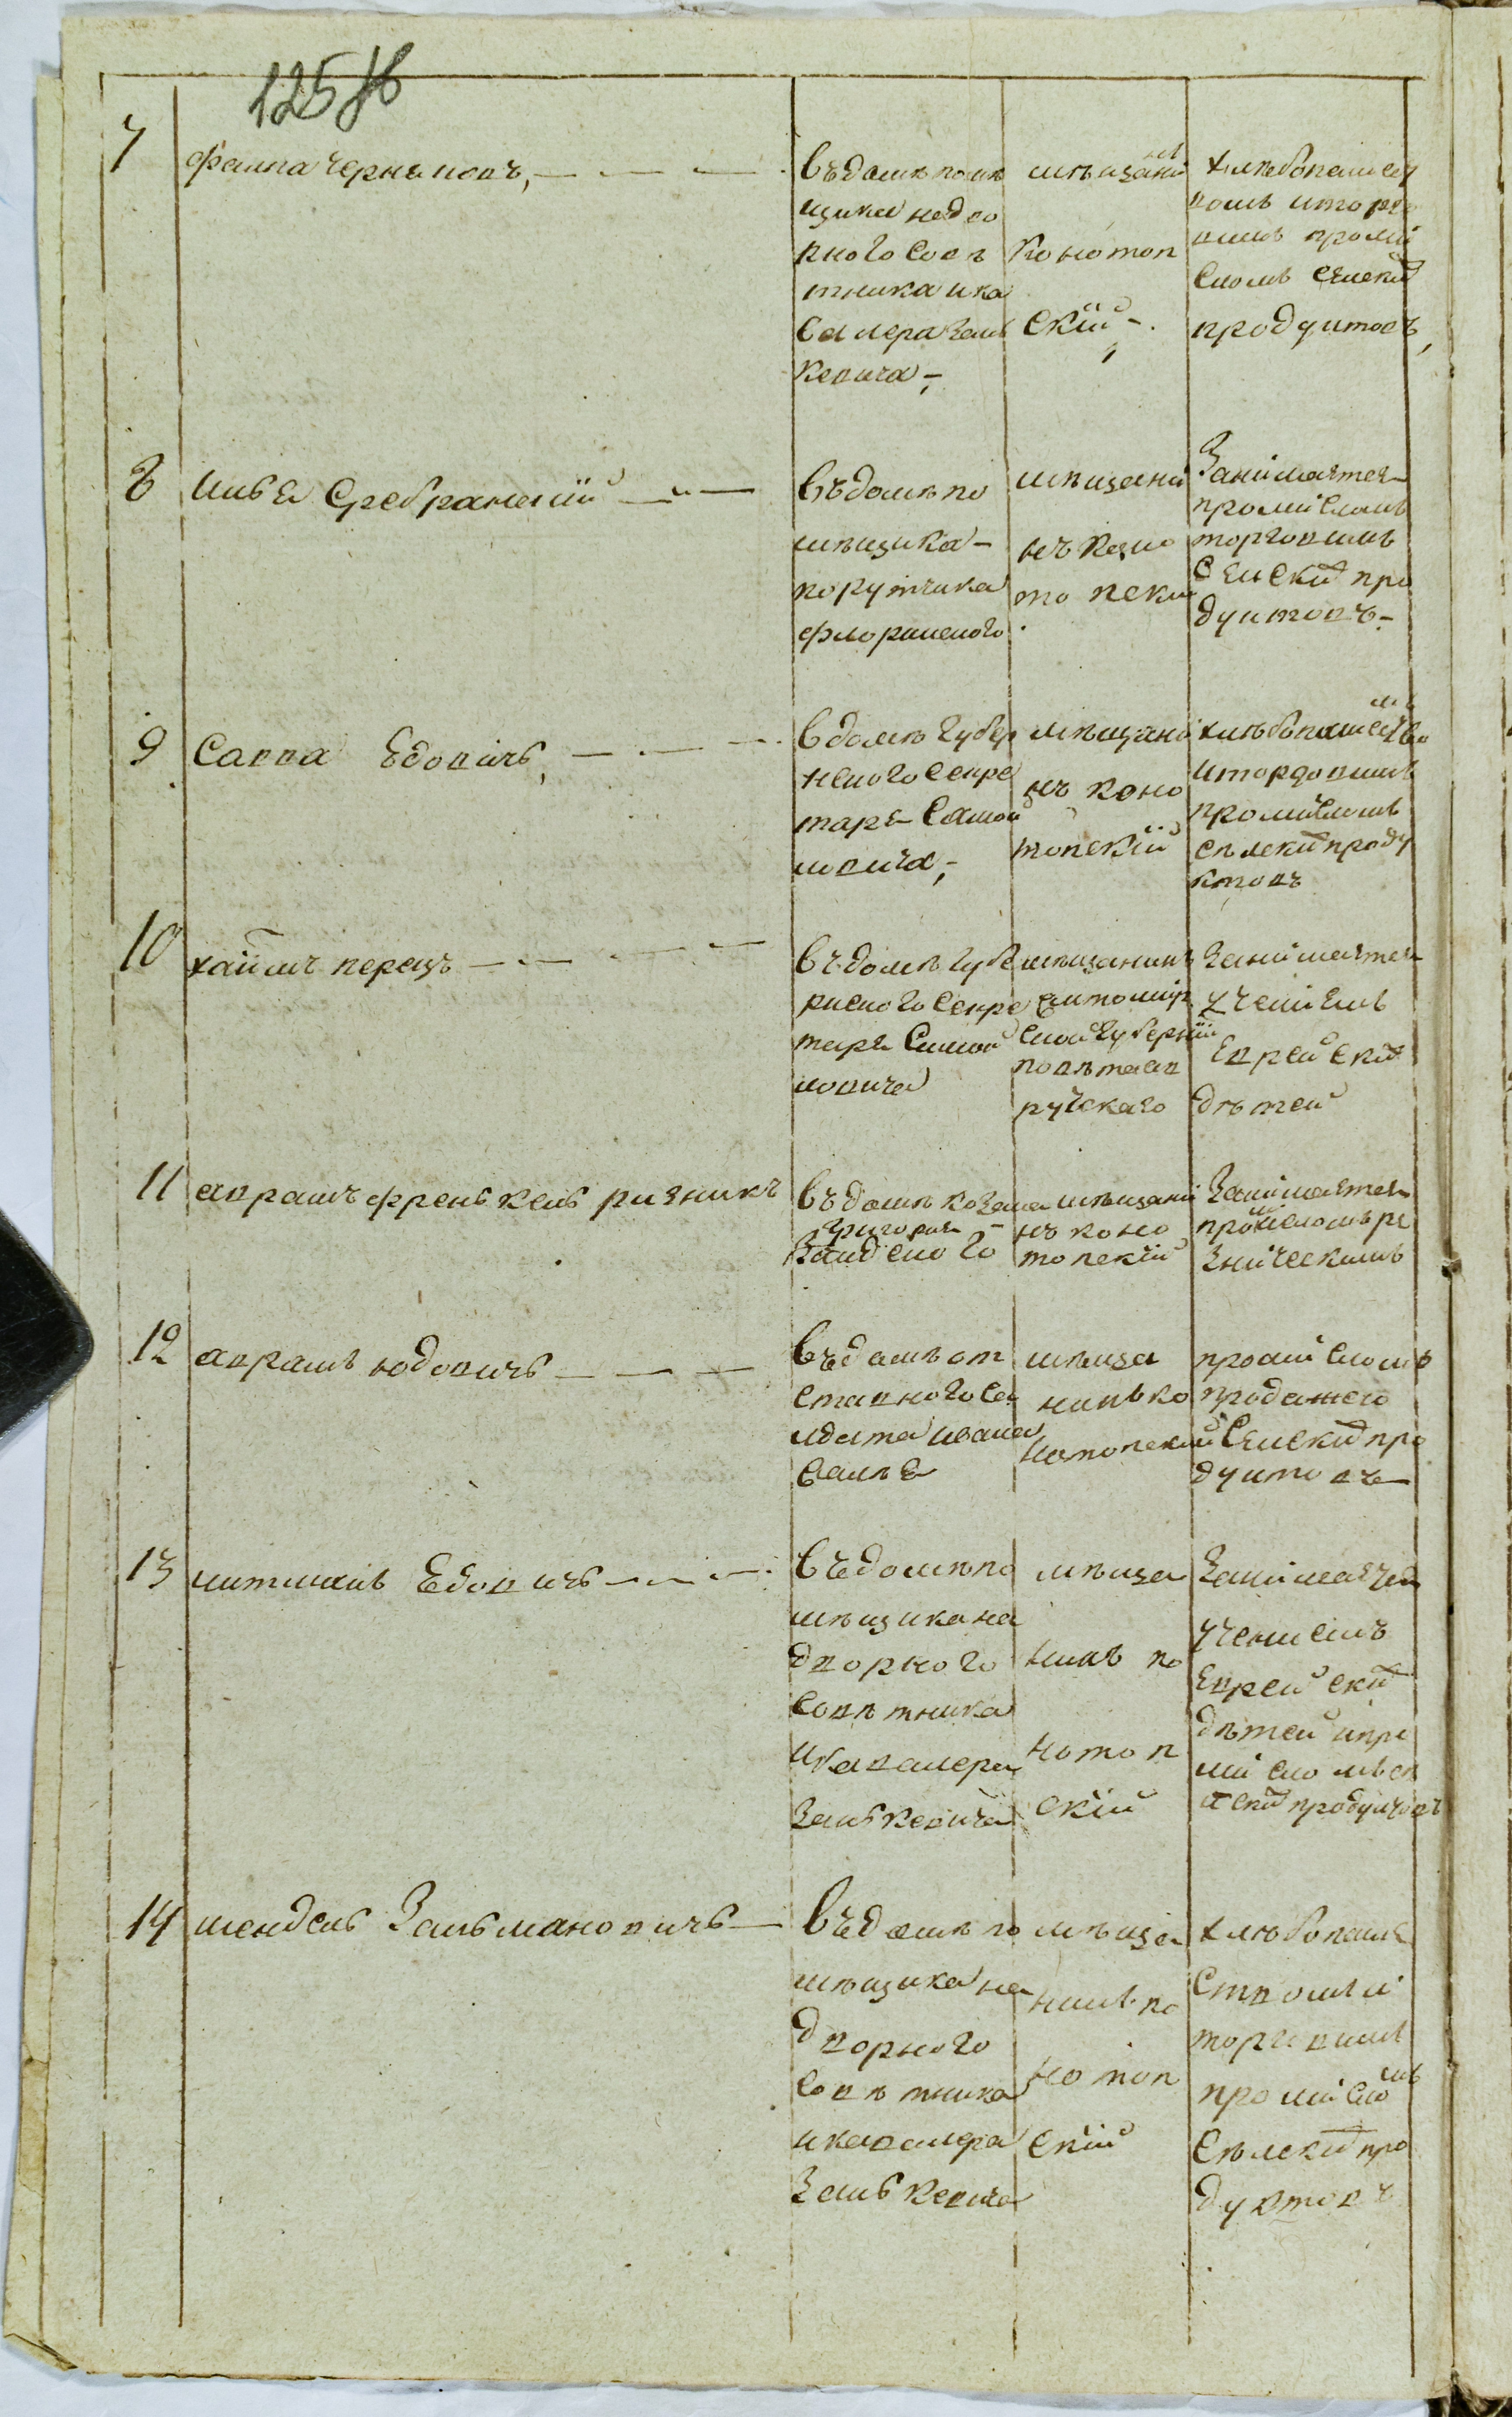 125
7
фаипа черняповъ,
въ домѣ помѣ
щика надво
рного совѣ
тника и ка
валера Зань
кевича
мѣщани нъ
Конотоп
скій
хлѣбопашес
вомъ и торго
вимъ проми
сломъ селскихъ
продуктовъ,
8
Сребранскій
въ домѣ по
мѣщика
порутчика
флоринского
мѣщани
нъ коно
топскій
Занимается
промисломъ
торговимъ
селскихъ про
дуктовъ
9
Савва Едовичъ,
в домѣ Губер
нского секре
таря Самой
ловича,
мѣщани
нъ коно
топскій
хлѣбопашество мъ
и торговимъ
промисломъ
сѣлскихъ проду
ктовъ
10
хаимъ перецъ
въ домѣ губе
рнского секре
таря Самой
ловича
мѣщанинъ
житомир
ской губерніи
повѣта ов
ручскаго
Занимается
ученіемъ
Еврейскихъ
дѣтей
11
авраамъ френькель ризникъ
въ домѣ козака
григория
мѣщани
нъ коно
топскій
Занимается
промисломъ ре
зническимъ
12
аврамъ юдовичъ
въ домѣ от
ставного со
лдата ивана
мѣща
нинъ ко
нотопский
промисломъ
продажею
Селскихъ про
дуктовъ
13
Едовичъ
въ домѣ по
мѣщика на
дворного
совѣтника
и кавалера
Занькевича
мѣща
нинъ ко
нотоп
скій
Занимается
ученіемъ
Еврейскихъ
дѣтей и про
мисломъ се
лскихъ продуктовъ
14
мендель Зальмановичъ
въ домѣ по
мѣщика на
дворного
совѣтника
и кавалера
Занькевича
мѣща
нинъ ко
нотоп
скій
хлѣбопаше
ствомъ и
торговимъ
промисломъ
Сѣлскихъ про
дуктовъ